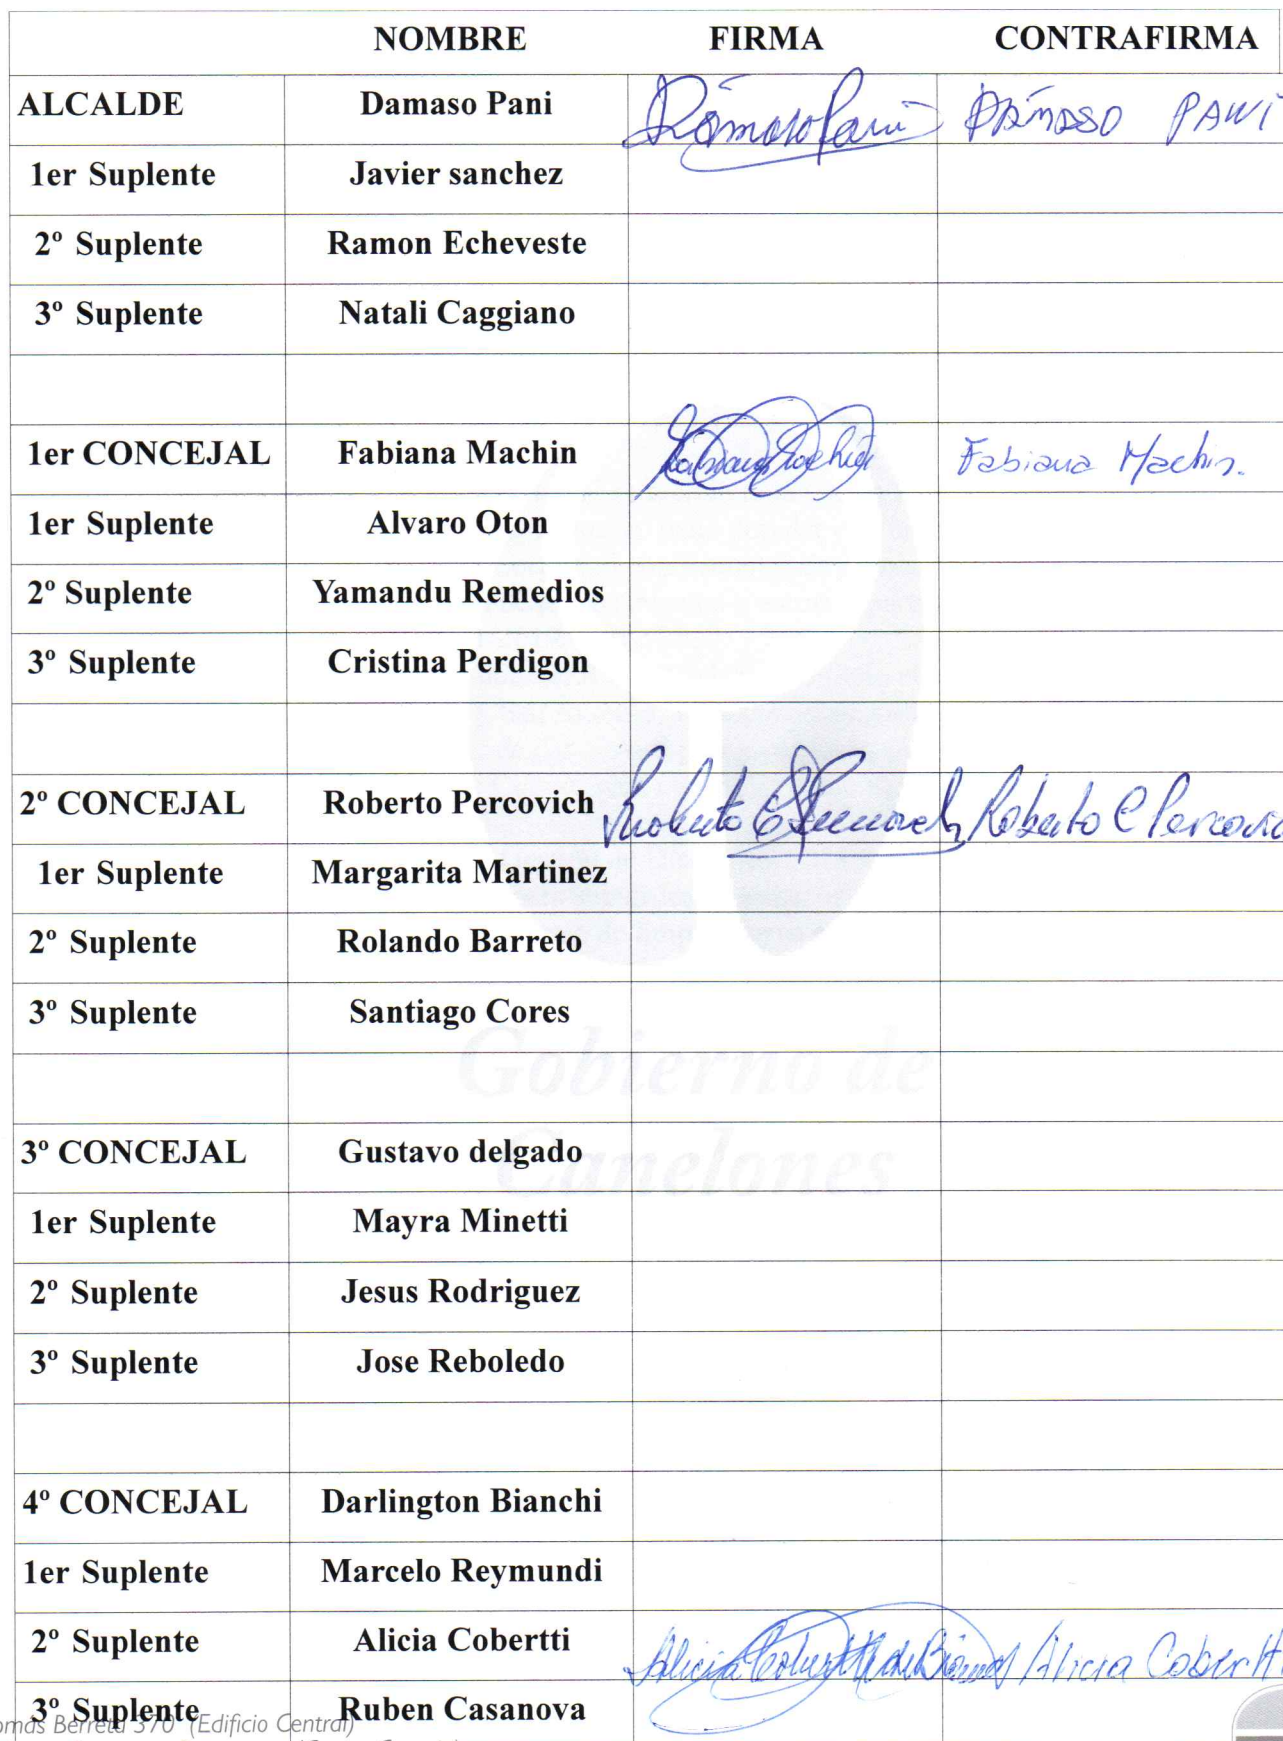 NOMBRE FIRMA CONTRAFIRMA
ALCALDE Damaso Pani Dámaso Pani DAMASO PANI
1er Suplente Javier sanchez
2º Suplente Ramon Echeveste
3º Suplente Natali Caggiano
1er CONCEJAL Fabiana Machin Fabiana Machin Fabiana Machin.
1er Suplente Alvaro Oton
2º Suplente Yamandu Remedios
3º Suplente Cristina Perdigon
2º CONCEJAL Roberto Percovich Roberto C Percovich Roberto C Percovic
1er Suplente Margarita Martinez
2º Suplente Rolando Barreto
3º Suplente Santiago Cores
Gobierno de
3º CONCEJAL Gustavo delgado
Canelones
1er Suplente Mayra Minetti
2º Suplente Jesus Rodriguez
3º Suplente Jose Reboledo
4º CONCEJAL Darlington Bianchi
1er Suplente Marcelo Reymundi
2º Suplente Alicia Cobertti Alicia Cobertti de Alicia Cobertti
3º Suplente Ruben Casanova
omás Berreta 370 (Edificio Central)